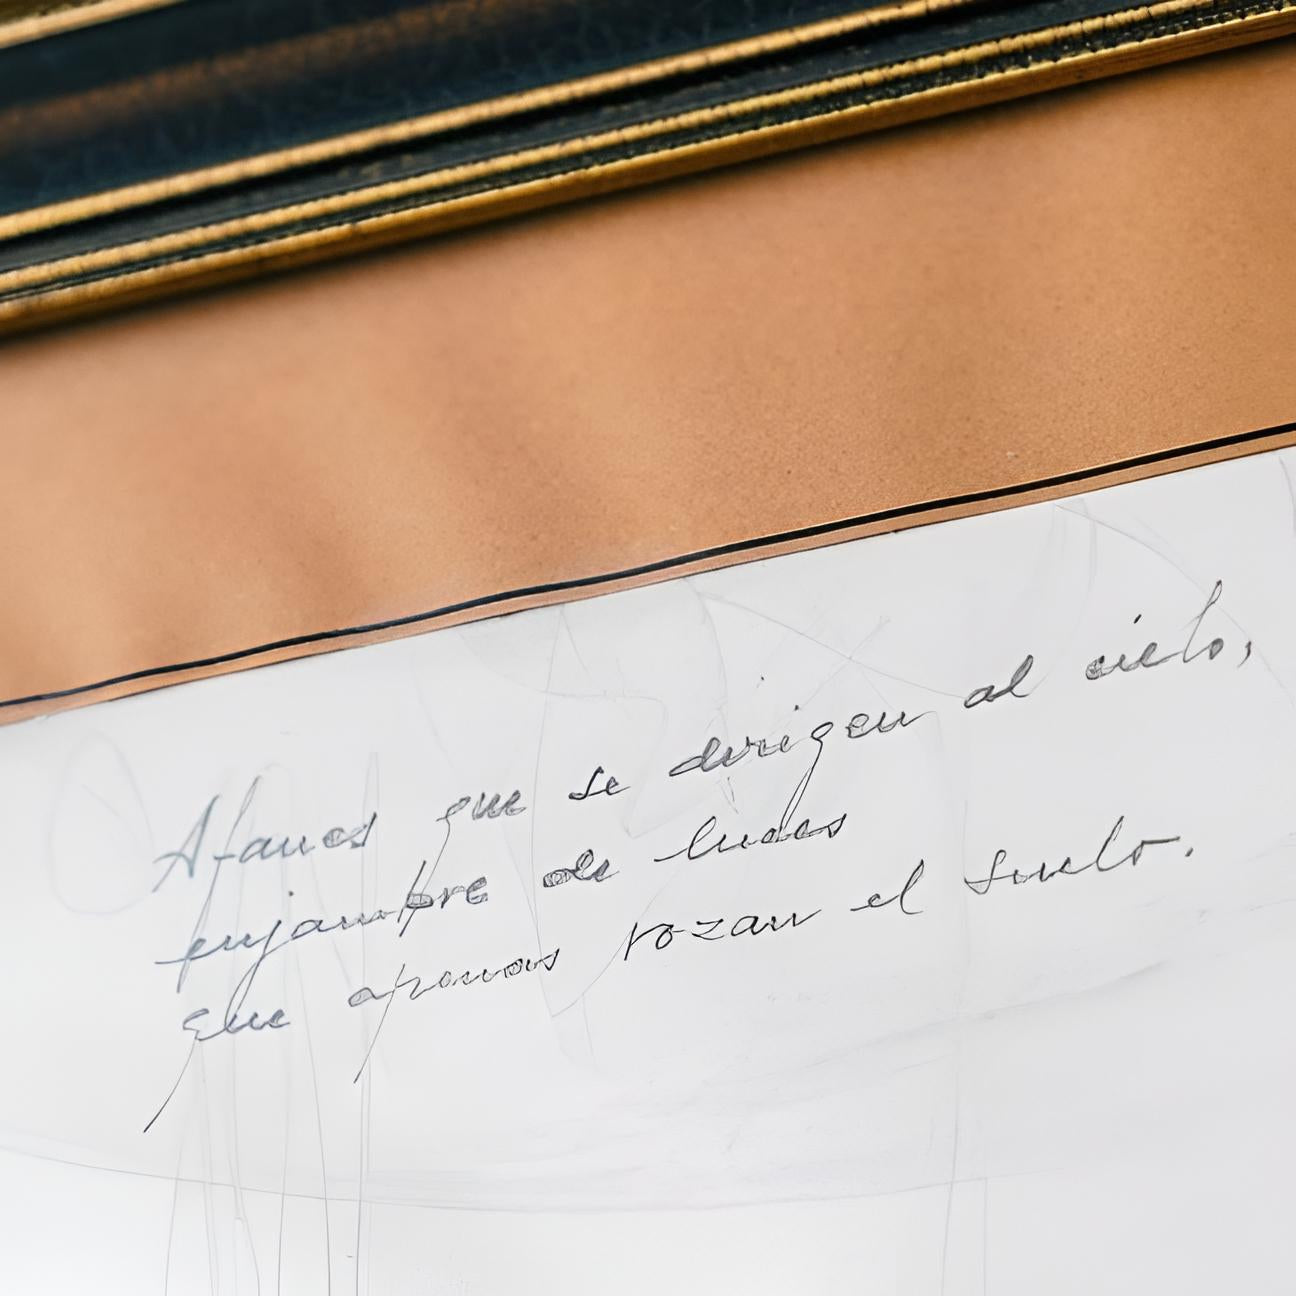 Afanes que se dirigen al cielo,
enjambre de luces
que apenas rozan el suelo.